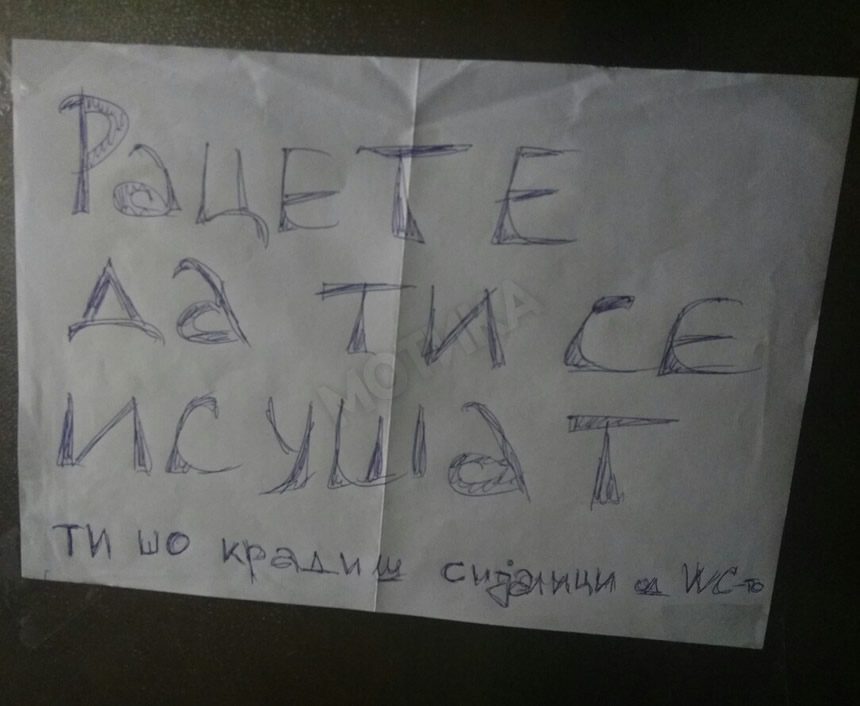 Рацете
да ти се
исушат
ти шо крадиш сијалици од WC-то
МОТИКА